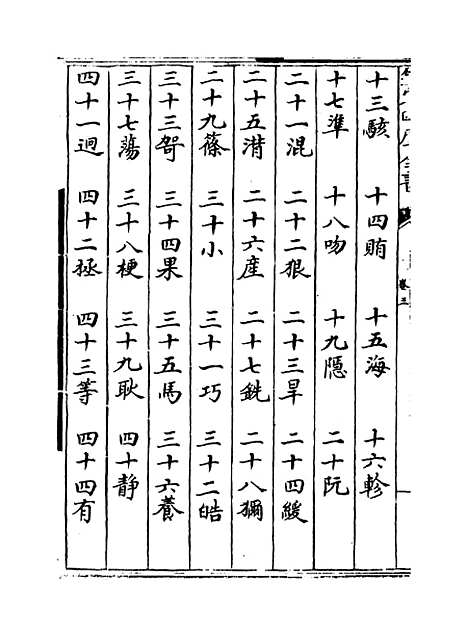 十三駭　十四賄　十五海　十六軫
十七準　十八吻　十九隱　二十阮
二十一混　二十二狠　二十三旱　二十四緩
二十五潸　二十六產　二十七銑　二十八獮
二十九篠　三十小　三十一巧　三十二皓
三十三哿　三十四果　三十五馬　三十六養
三十七蕩　三十八梗　三十九耿　四十靜
四十一迥　四十二拯　四十三等　四十四有
卷三